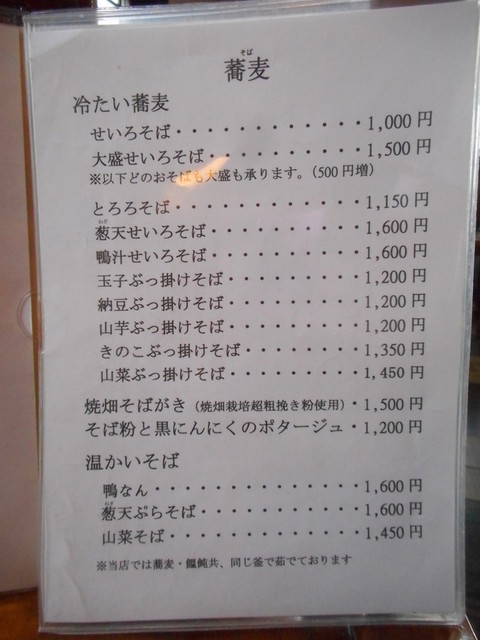 そば
蕎麦
冷たい蕎麦
せいろそば・・・・・・・・・・・・1,000円
大盛せいろそば・・・・・・・・・・1,500円
※以下どのおそばも大盛も承ります。（500円増）
とろろそば・・・・・・・・・・・・1,150円
ねぎ
葱天せいろそば・・・・・・・・・・1,600円
鴨汁せいろそば・・・・・・・・・・1,600円
玉子ぶっ掛けそば・・・・・・・・・1,200円
納豆ぶっ掛けそば・・・・・・・・・1,200円
山芋ぶっ掛けそば・・・・・・・・・1,200円
きのこぶっ掛けそば・・・・・・・・1,350円
山菜ぶっ掛けそば・・・・・・・・・1,450円
焼畑そばがき（焼畑栽培超粗挽き粉使用）・1,500円
そば粉と黒にんにくのポタージュ・1,200円
温かいそば
鴨なん・・・・・・・・・・・・・・1,600円
ねぎ
葱天ぷらそば・・・・・・・・・・・1,600円
山菜そば・・・・・・・・・・・・・1,450円
※当店では蕎麦・饂飩共、同じ釜で茹でております